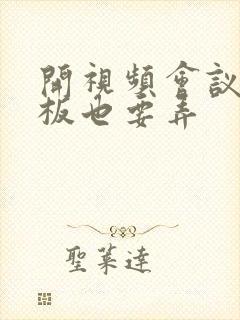 開視頻會議
板也要弄
聖萊達